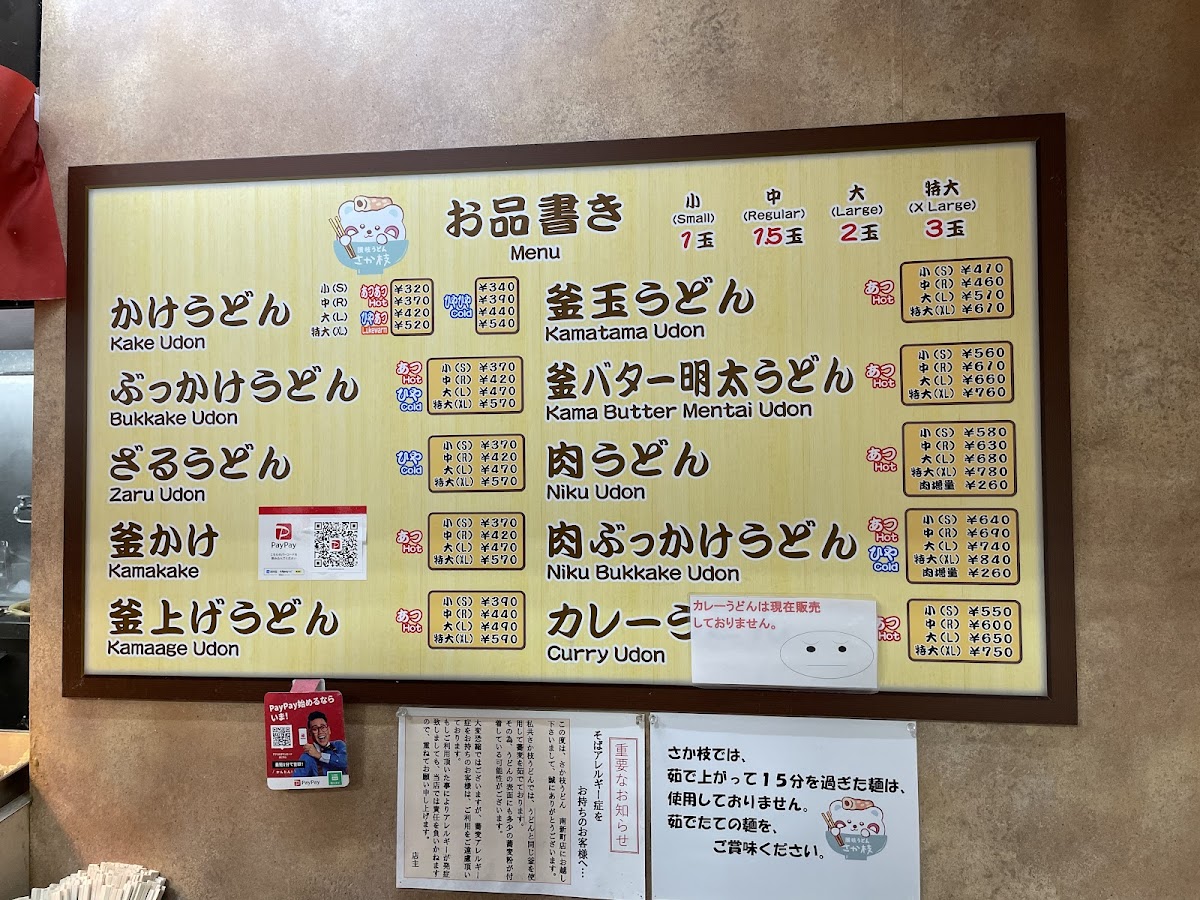 お品書き
Menu
讃岐うどん
さか枝
小
(Small)
1玉
中
(Regular)
1.5玉
大
(Large)
2玉
特大
(X Large)
3玉
かけうどん
Kake Udon
小(S)
中(R)
大(L)
特大(XL)
あつあつ
Hot
ひやあつ
Lukewarm
¥320
¥370
¥420
¥520
ひやひや
Cold
¥340
¥390
¥440
¥540
ぶっかけうどん
Bukkake Udon
あつ
Hot
ひや
Cold
小(S) ¥370
中(R) ¥420
大(L) ¥470
特大(XL) ¥570
ざるうどん
Zaru Udon
ひや
Cold
小(S) ¥370
中(R) ¥420
大(L) ¥470
特大(XL) ¥570
釜かけ
Kamakake
PayPay
あつ
Hot
小(S) ¥370
中(R) ¥420
大(L) ¥470
特大(XL) ¥570
釜上げうどん
Kamaage Udon
あつ
Hot
小(S) ¥390
中(R) ¥440
大(L) ¥490
特大(XL) ¥590
釜玉うどん
Kamatama Udon
あつ
Hot
小(S) ¥410
中(R) ¥460
大(L) ¥510
特大(XL) ¥610
釜バター明太うどん
Kama Butter Mentai Udon
あつ
Hot
小(S) ¥560
中(R) ¥610
大(L) ¥660
特大(XL) ¥760
肉うどん
Niku Udon
あつ
Hot
小(S) ¥580
中(R) ¥630
大(L) ¥680
特大(XL) ¥780
肉増量 ¥260
肉ぶっかけうどん
Niku Bukkake Udon
あつ
Hot
ひや
Cold
小(S) ¥640
中(R) ¥690
大(L) ¥740
特大(XL) ¥840
肉増量 ¥260
カレーう
Curry Udon
カレーうどんは現在販売
しておりません。
あつ
Hot
小(S) ¥550
中(R) ¥600
大(L) ¥650
特大(XL) ¥750
PayPay始めるなら
いま!
PayPay
重要なお知らせ
そばアレルギー症を
お持ちのお客様へ…
この度は、さか枝うどん 南新町店にお越し
下さいまして、誠にありがとうございます。
私共さか枝うどんでは、うどんと同じ釜を使
用して蕎麦を茹でております。
その為、うどんの表面にも多少の蕎麦粉が付
着している可能性がございます。
大変恐縮ではございますが、蕎麦アレルギー
症をお持ちのお客様は、ご利用をご遠慮頂い
ております。
もしご利用頂いた事によりアレルギーが発症
致しましても、当店では責任を負いかねます
ので、重ねてお願い申し上げます。
店主
さか枝では、
茹で上がって15分を過ぎた麺は、
使用しておりません。
茹でたての麺を、
ご賞味ください。
讃岐うどん
さか枝